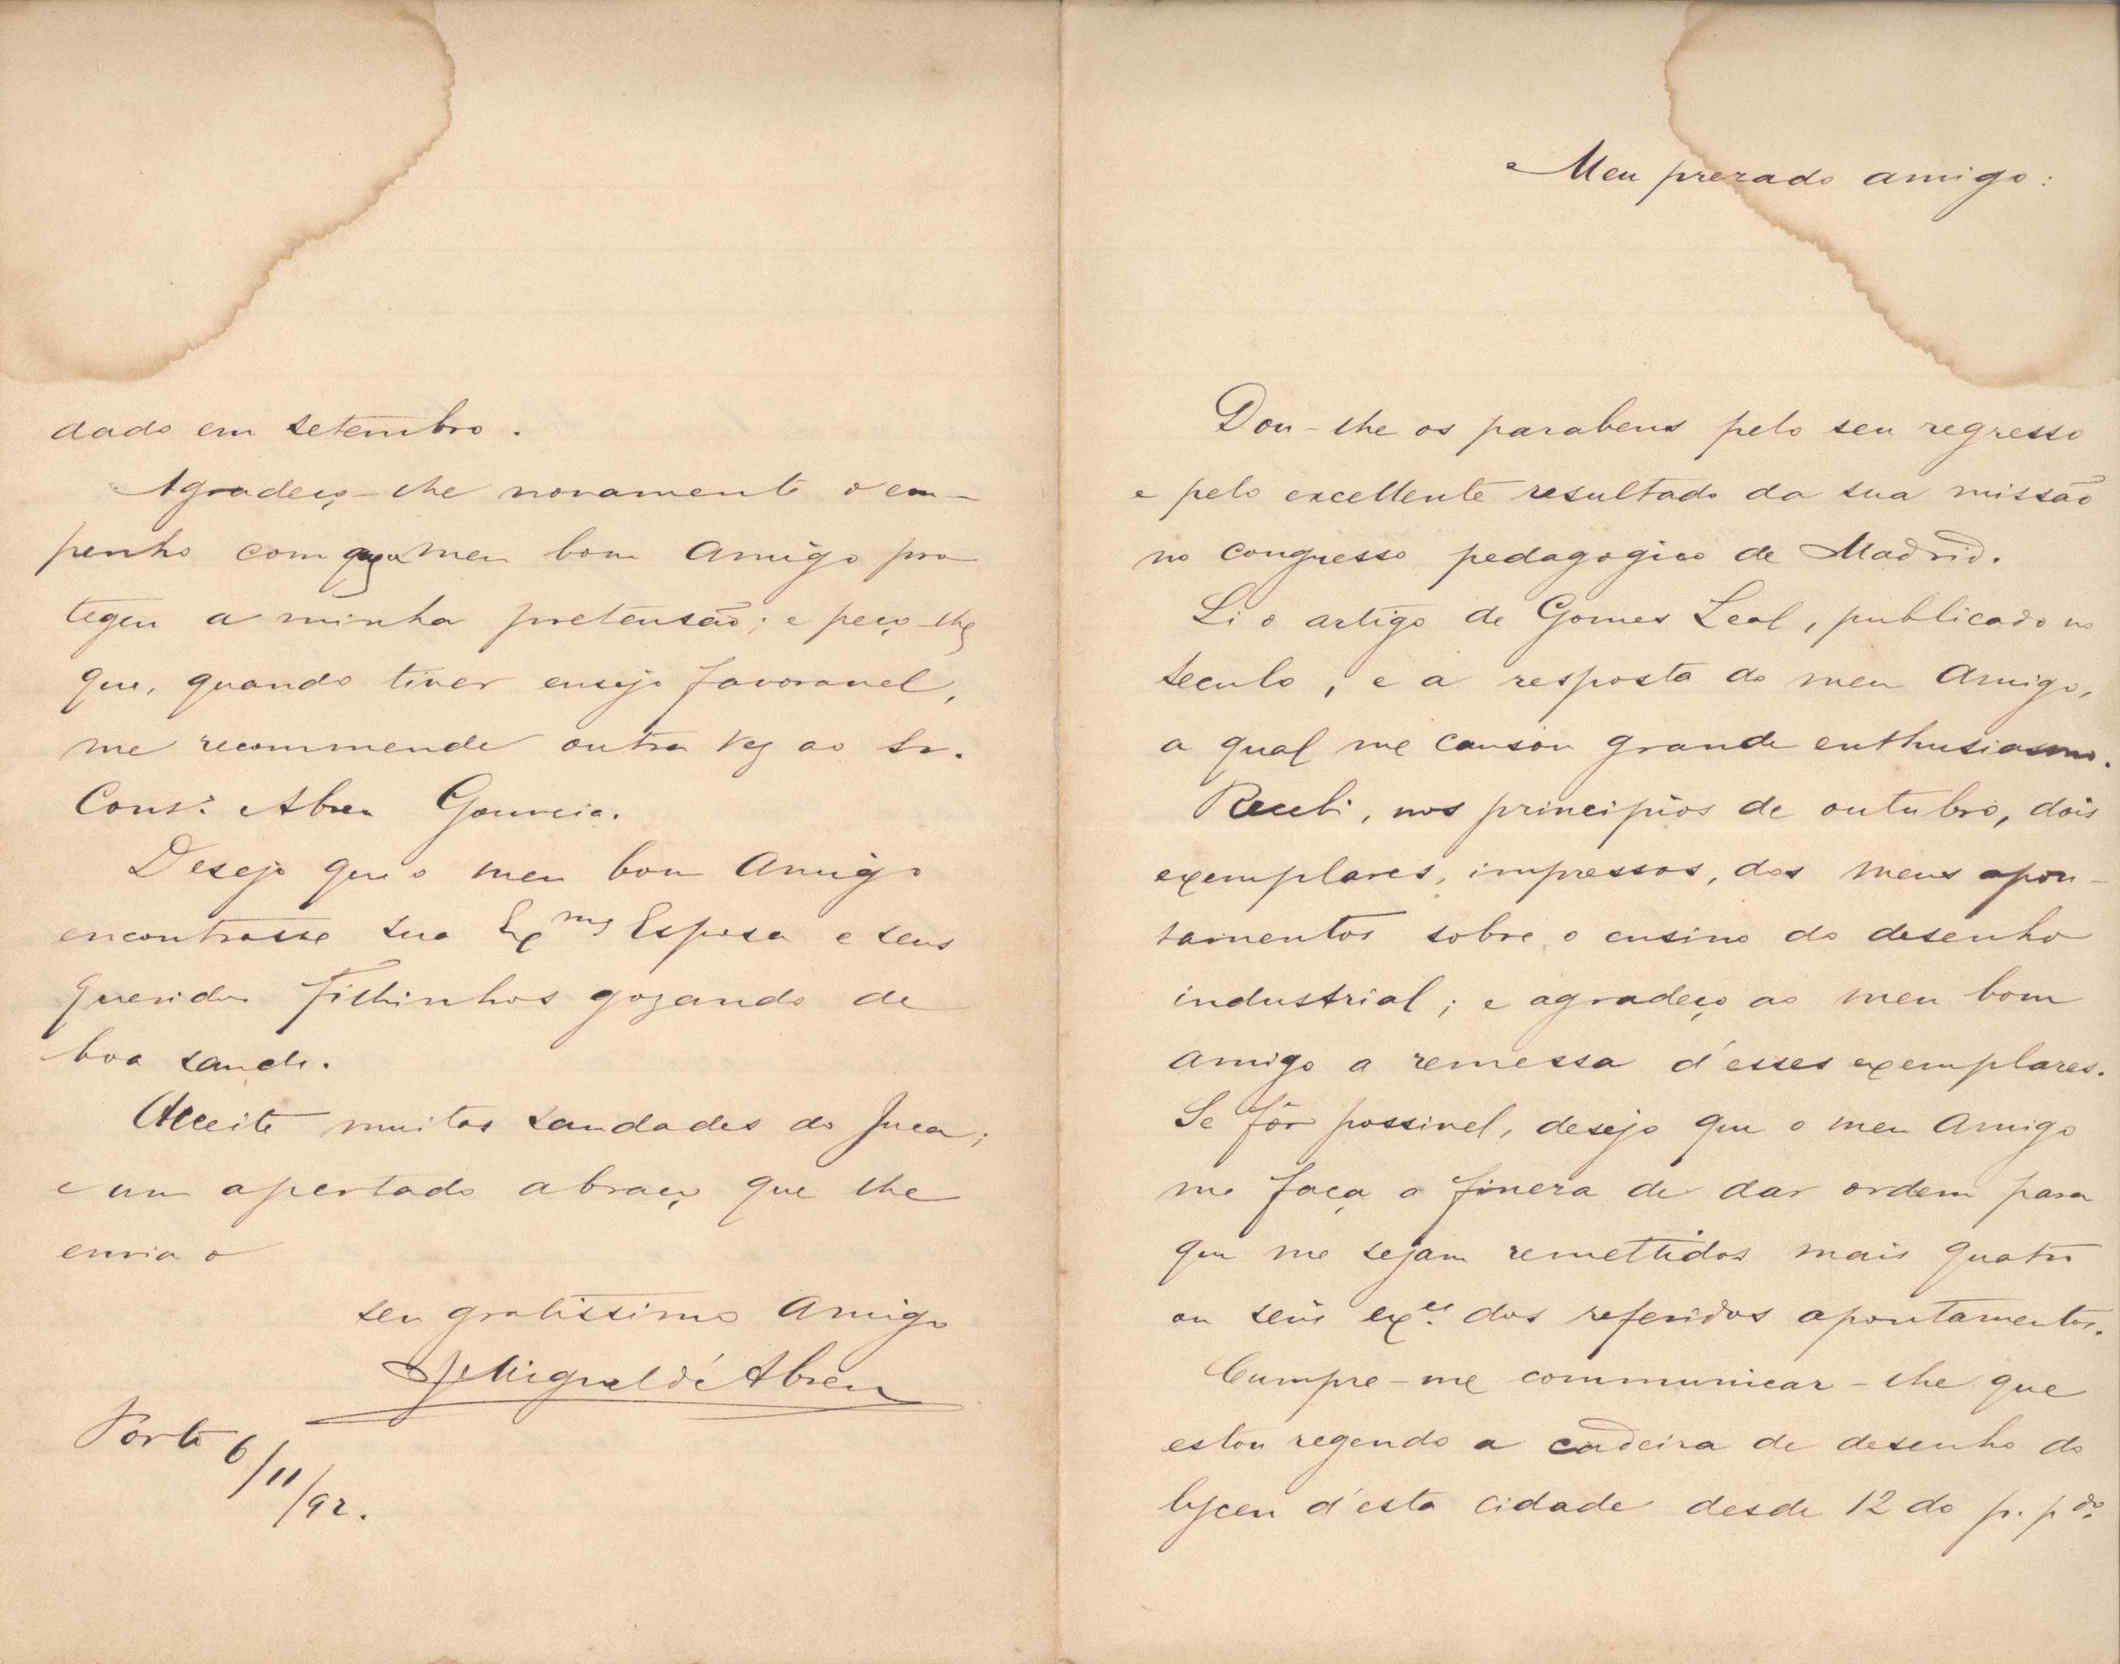 Meu prezado amigo:
Dou-lhe os parabens pelo seu regresso
e pelo excellente resultado da sua missão
no congresso pedagogico de Madrid.
Li o artigo de Gomes Leal, publicado no
seculo, e a resposta do meu amigo,
a qual me causou grande enthusiasmo.
Recebi, nos principios de outubro, dois
exemplares, impressos, dos meus apon-
tamentos sobre o ensino do desenho
industrial; e agradeço ao meu bom
amigo a remessa d'esses exemplares.
Se fôr possivel, desejo que o meu amigo
me faça a fineza de dar ordem para
que me sejam remettidos mais quatro
ou seis ex.es dos referidos apontamentos.
Cumpre-me communicar-lhe que
estou regendo a cadeira de desenho do
lyceu d'esta cidade desde 12 do p. p.do
dado em setembro.
Agradeço-lhe novamente o em-
penho com que o meu bom amigo pro
tegeu a minha pretensão; e peço-lhe
que, quando tiver ensejo favoravel,
me recommende outra vez ao Sr.
Cons.o Abreu Gouveia.
Desejo que o meu bom amigo
encontrasse sua Ex.ma Esposa e seus
queridos filhinhos gozando de
boa saude.
Acceite muitas saudades do Juca;
e um apertado abraço que lhe
envia o
seu gratissimo amigo
J Miguel d'Abreu
Porto 6/11/92.